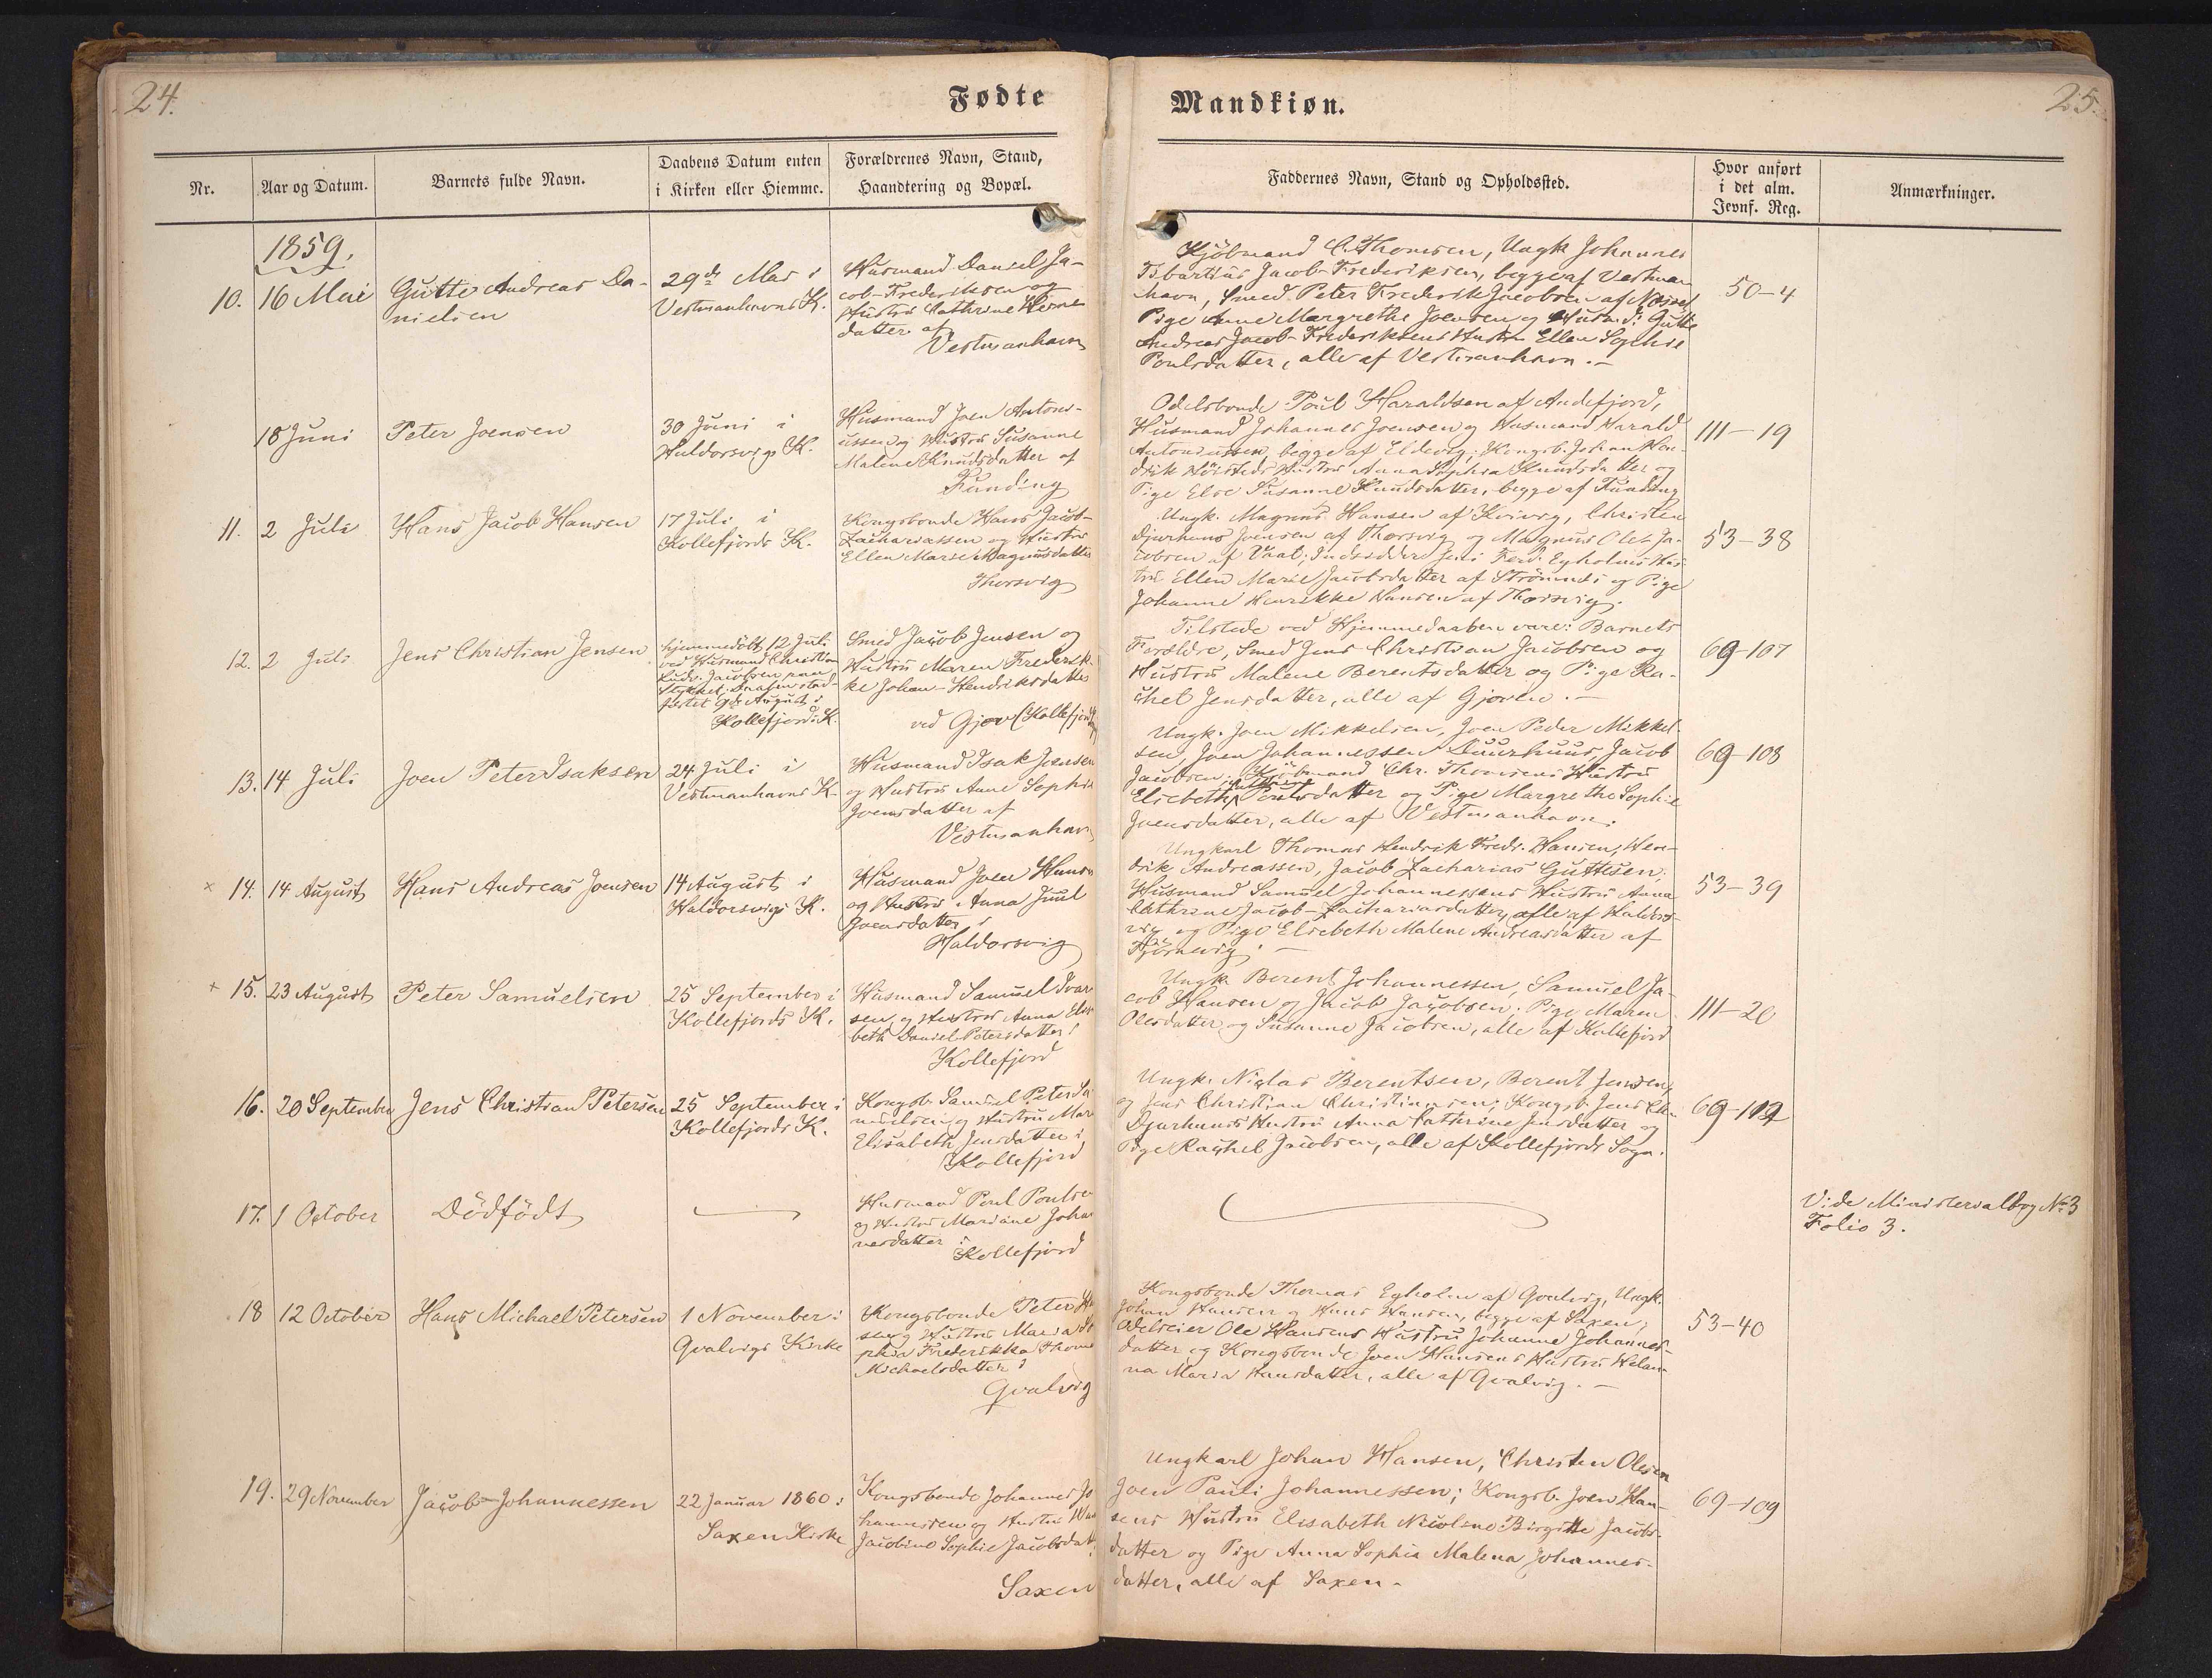 24.
Fødte
Nr.
Aar og Datum.
Barnets fulde Navn.
Daabens Datum enten
i Kirken eller Hiemme.
Forældrenes Navn, Stand,
Haandtering og Bopæl.
1859.
10.
16 Mai
Gutte Andreas Da-
nielsen
29de Mai i
Vestmanhavns K.
Husmand Daniel Ja-
cob-Frederiksen og
Hustru Cathrine
datter af
Vestmanhavn
18 Juni
Peter Joensen
30 Juni i
Haldorsvigs K.
Husmand Joen Antoni-
ussen og Hustru Susanne
Malene Knudsdatter af
Funding
11.
2 Juli
Hans Jacob Hansen
17 Juli i
Kollefjords K.
Kongsbonde Hans Jacob-
Zachariassen og Hustru
Ellen Marie Magnusdatter
Thorsvig
12.
2 Juli
Jens Christian Jensen
hjemmedöbt 12 Juli
ved Husmand Christian
Ludv. Jacobsen paa
Stykket; Daaben stad-
fæstet 9de August i
Kollefjords K.
Smed Jacob Jensen og
Hustru Maren Frederik-
ke Johan-Hendriksdatter
ved Gjov (Kollefjord)
13.
14 Juli
Joen Peter Isaksen
24 Juli i
Vestmanhavns K.
Husmand Isak Joensen
og Hustru Anne Sophie
Joensdatter af
Vestmanhavn
× 14.
14 August
Hans Andreas Joensen
14 August i
Haldorsvigs K.
Husmand Joen Hansen
og Hustru Anna Juul
Joensdatter i
Haldorsvig
+ 15.
23 August
Peter Samuelsen
25 September i
Kollefjords K.
Husmand Samuel Ivar
sen og Hustru Anna Elisa
beth Daniel-Petersdatter i
Kollefjord
16.
20 September
Jens Christian Petersen
25 September i
Kollefjords K.
Kongsb. Samuel Peter Sa
muelsen og Hustru Mar
Elisabeth Jensdatter i
Kollefjord
17.
1 October
Dödfödt
Husmand Poul Poulse
og Hustru Mariane Joha
nesdatter i
Kollefjord
18
12 October
Hans Michael Petersen
1 November i
Qvalvigs Kirke
Kongsbonde Peter Ha
sen og Hustru Maria So
phia Frederikka Thoma
Michaelsdatter i
Qvalvig
19.
29 November
Jacob Johannessen
22 Januar 1860 i
Saxen Kirke
Kongsbonde Johannes Jo
hannessen og Hustru
Jacobine Sophie Jacobsdatt
Saxen
Mandkiøn.
25.
Faddernes Navn, Stand og Opholdssted.
Hvor anført
i det alm.
Jevnf. Reg.
Anmærkninger.
Kjöbmand C. Thomsen, Ungk Johannes
Jacob-Frederiksen, begge af Vestman
havn, Smed Peter Frederik Jacobsen af
Pige Anne Margrethe Joensen og Husmd: Gutte
Andreas Jacob-Frederiksens Hustru Ellen Sophie
Poulsdatter, alle af Vestmanhavn. —
50-4
Odelsbonde Poul Haraldsen af Andefjord,
Husmand Johannes Joensen og Husmand Harald
Antoniussen, begge af Eldevig; Kongsb. Johan Hen-
drik Hustru Anna Sophia Knudsdatter og
Pige Else Susanne Knudsdatter, begge af Funding
111-19
Ungk. Magnus Hansen af Kvivig, Christen
Djurhuus Joensen af Thorsvig og Magnus Oles Ja-
cobsen af Vaat; Indsidder Jens Ferd. Egholms Hus
tru Ellen Marie Jacobsdatter af Strömnæs og Pige
Johanne Henrikke Hansen af Thorsvig.
53-38
Tilstede ved Hjemmedaaben vare: Barnets
Forældre, Smed Jens Christian Jacobsen og
Hustru Malene Berentsdatter og Pige Ra-
chel Jensdatter, alle af Gjoven. —
69-107
Ungk. Joen Mikkelsen, Joen Peder Mikkel-
sen, Joen Johannessen Duurhuus, Jacob
Jacobsen; Kjöbmand Chr. Thomsens Hustru
Elsebeth Poulsdatter og Pige Margrethe Sophie
Joensdatter, alle af Vestmanhavn.
69-108
Ungkarl Thomas Hendrik Fredr. Hansen, Hen-
drik Andreassen, Jacob Zacharias Guttesen;
Husmand Samuel Johannessens Hustru Anna
Cathrine Jacob-Zachariasdatter, alle af Haldors-
vig og Pige Elsebeth Malene Andreasdatter af
Tjörnevig. —
53-39
Ungk. Berent Johannessen, Samuel Ja-
cob Hansen og Jacob Jacobsen; Pige Maren
Olesdatter og Susanne Jacobsen, alle af Kollefjord
111-20
Ungk. Niclas Berentsen, Berent Jensen
og Jens Christian Christiansen; Kongsb. Jens Chr.
Djurhuus Hustru Anna Cathrine Jensdatter og
Pige Rachel Jacobsen, alle af Kollefjords Sogn.
69-112
Vide Ministerialbog No 3
Folio 3.
Kongsbonde Thomas Egholm af Qvalvig, Ungk.
Johan Hansen og Hans Hansen, begge af Saxen;
Odelseier Ole Hansens Hustru Johanne Johannes-
datter og Kongsbonde Joen Hansens Hustru Helen-
na Maria Hansdatter, alle af Qvalvig. —
53-40
Ungkarl Johan Hansen, Christen Olesen
Joen Pauli Johannessen; Kongsb. Joen Han-
sens Hustru Elisabeth Nicoline Birgitte Jacobs-
datter og Pige Anna Sophia Malena Johannes-
datter, alle af Saxen -
69-109